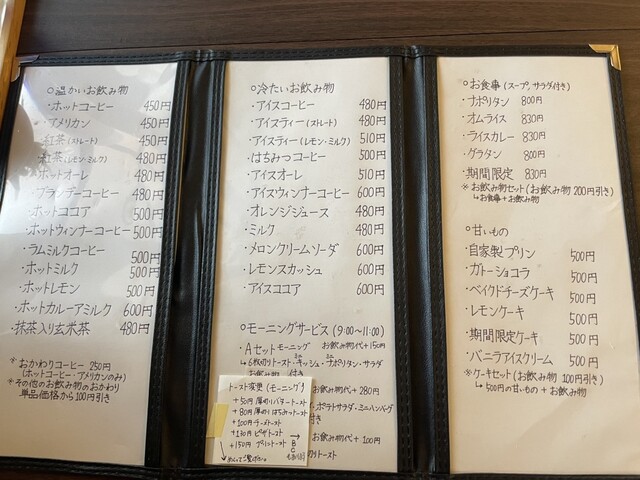 ○温かいお飲み物
・ホットコーヒー 450円
・アメリカン 450円
・紅茶(ストレート) 450円
・紅茶(レモン・ミルク) 480円
・ホットオーレ 480円
・ブランデーコーヒー 480円
・ホットココア 500円
・ホットウィンナーコーヒー 500円
・ラムミルクコーヒー 500円
・ホットミルク 500円
・ホットレモン 500円
・ホットカルーアミルク 600円
・抹茶入り玄米茶 480円
※おかわりコーヒー 250円
(ホットコーヒー・アメリカンのみ)
※その他のお飲み物のおかわり
単品価格から100円引き
○冷たいお飲み物
・アイスコーヒー 480円
・アイスティー(ストレート) 480円
・アイスティー(レモン・ミルク) 510円
・はちみつコーヒー 500円
・アイスオーレ 510円
・アイスウィンナーコーヒー 600円
・オレンジジュース 480円
・ミルク 480円
・メロンクリームソーダ 600円
・レモンスカッシュ 600円
・アイスココア 600円
○モーニングサービス(9:00〜11:00)
・Aセットモーニング お飲み物代+150円
↳6枚切りトースト・ミニキッシュ・ミニナポリタン・サラダ
お飲み物 付き
お飲み物代+280円
ポテトサラダ・ミニハンバーグ
付き
お飲み物代+100円
切りトースト
トースト変更(モーニング)
+50円 厚切りバタートースト
+80円 厚切りはちみつトースト
+100円 チーズトースト
+130円 ピザトースト
+150円
○お食事(スープ、サラダ付き)
・ナポリタン 800円
・オムライス 830円
・ライスカレー 830円
・グラタン 800円
・期間限定 830円
※お飲み物セット(お飲み物200円引き)
↳お食事+お飲み物
○甘いもの
・自家製プリン 500円
・ガトーショコラ 500円
・ベイクドチーズケーキ 500円
・レモンケーキ 500円
・期間限定ケーキ 500円
・バニラアイスクリーム 500円
※ケーキセット(お飲み物100円引き)
↳500円の甘いもの+お飲み物